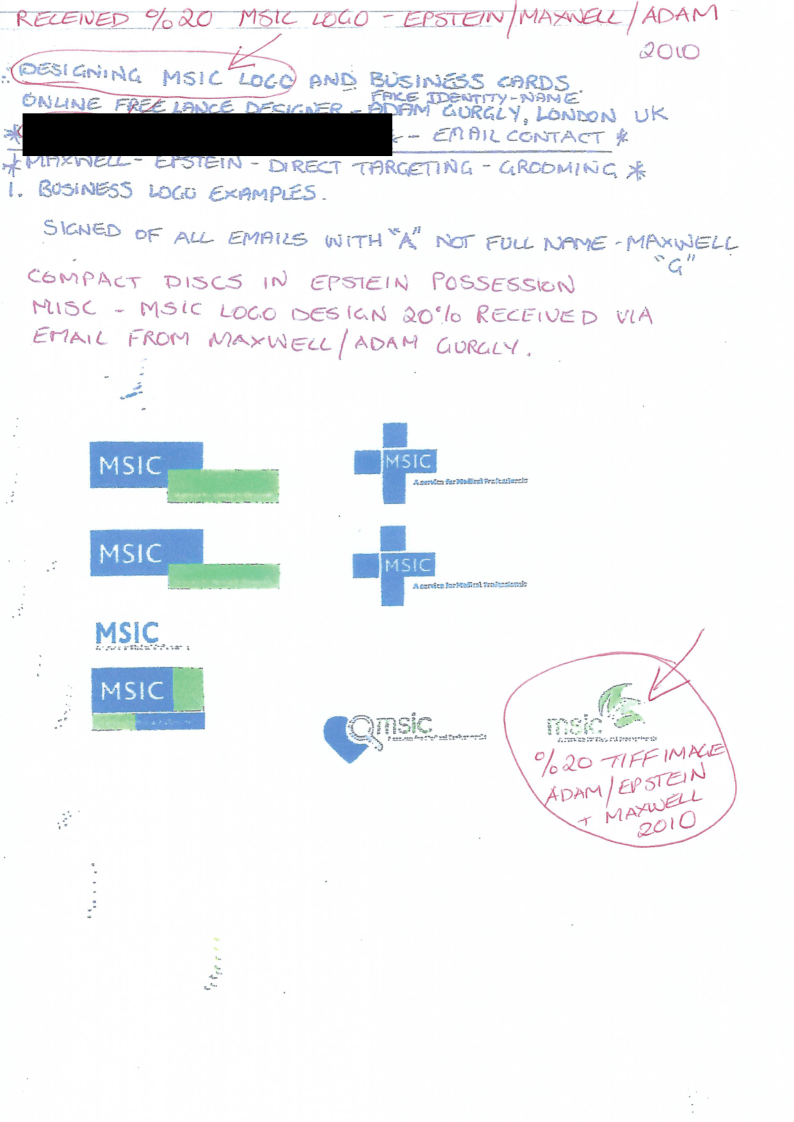 RECEIVED %20 MSIC LOGO - EPSTEIN/MAXWELL/ADAM
2010
DESIGNING MSIC LOGO AND BUSINESS CARDS.
FAKE IDENTITY-NAME
ONLINE FREE LANCE DESIGNER - ADAM GURGLY, LONDON UK
* - EMAIL CONTACT *
* MAXWELL - EPSTEIN - DIRECT TARGETING - GROOMING *
1. BUSINESS LOGO EXAMPLES.
SIGNED OF ALL EMAILS WITH "A" NOT FULL NAME - MAXWELL
"G"
COMPACT DISCS IN EPSTEIN POSSESSION
MISC - MSIC LOGO DESIGN 20% RECEIVED VIA
EMAIL FROM MAXWELL/ADAM GURGLY.
MSIC
MSIC
A service for Medical Professionals
MSIC
MSIC
A service for Medical Professionals
MSIC
MSIC
msic
msic
%20 TIFF IMAGE
ADAM/EPSTEIN
+ MAXWELL
2010